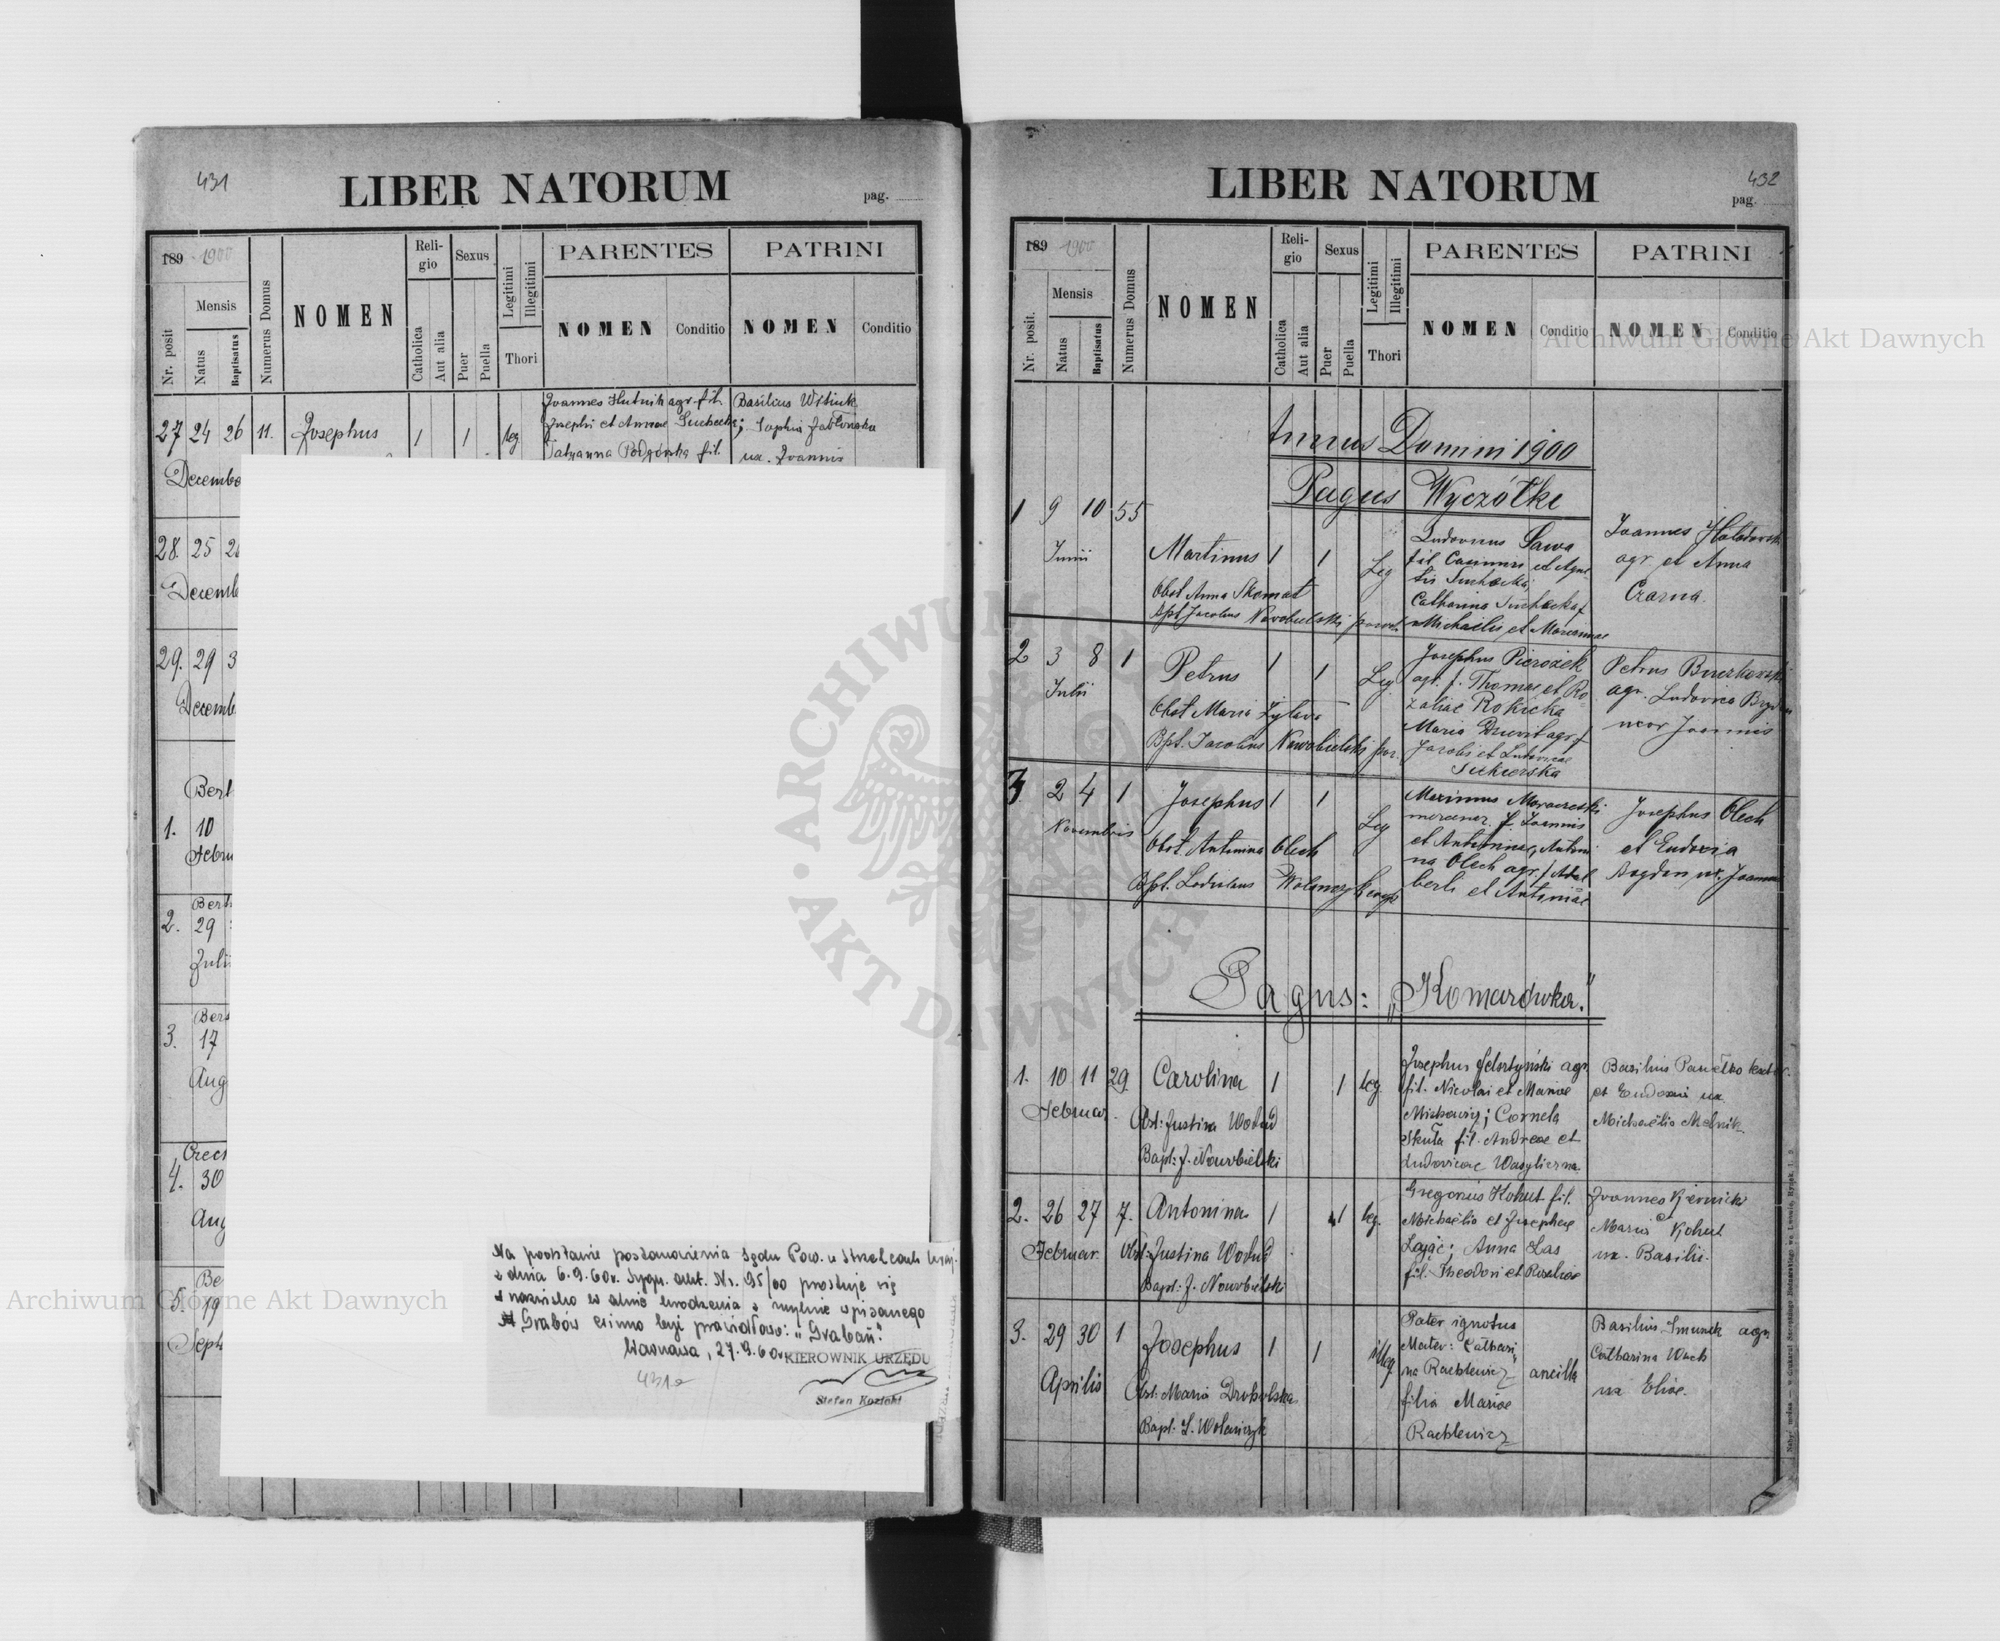 431
LIBER NATORUM
pag.
189 1900
Nr. posit
Mensis
Natus
Baptisatus
Numerus Domus
NOMEN
Religio
Catholica
Aut alia
Sexus
Puer
Puella
Legitimi
Illegitimi
Thori
PARENTES
NOMEN
Conditio
PATRINI
NOMEN
Conditio
27 24 26 11. Josephus 1 1 leg
Decembr
Joannes Hutnik agr. fil.
Josephi et Annae
Tatyanna Podgórska fil.
Basilius
Sophia Jabłońska
ux. Joannis
28. 25
Decemb
29. 29 3
Decemb
Bert
1. 10
Febru
Bert
2. 29
Juli
Ber
3. 17
Aug
4. 30
Aug
Be
5. 19
Septe
Na podstawie postanowienia Sądu Pow. w Strzelcach Kraj.
z dnia 6.9.60r. Sygn. akt. Ns. 95/60 prostuje się
nazwisko w akcie urodzenia z mylnie wpisanego
Grabów winno być prawidłowo: "Grabań".
Warszawa, 27.9.60r.
KIEROWNIK URZĘDU
Stefan Kozicki
431a
432
LIBER NATORUM
pag.
189 1900
Nr. posit.
Mensis
Natus
Baptisatus
Numerus Domus
NOMEN
Religio
Catholica
Aut alia
Sexus
Puer
Puella
Legitimi
Illegitimi
Thori
PARENTES
NOMEN
Conditio
PATRINI
NOMEN
Conditio
Annus Domini 1900
Pagus Wyczółki
1 9 10 55
Junii
Martinus 1 1 Leg
Obst Anna Skomat
Bpt Jacobus Nowobielski
Ludovicus Sawa
fil Casimiri et Agne-
tis Suchecka;
Catharina Suchecka f
Michaelis et Marianae
Joannes
agr et Anna
Czarna.
2 3 8 1
Julii
Petrus 1 1 Leg
Obst Maria Żyława
Bpt. Jacobus Nowobielski par.
Josephus Pierożek
agr. f. Thomae et Ro-
zaliae Rokicka
Maria
Jacobi et Ludovicae
Petrus
agr. Ludovica
uxor Joannis
3 2 4 1
Novembris
Josephus 1 1 Leg
Obst Antonina Olech
Bpt. Ladislaus Wolanczyk
mercenar. f. Joannis
et Antoninae, Antoni
na Olech agr. f Adal
berti et Antoniae
Josephus Olech
et Eudoxia
Bogdan ux. Joannis
Pagus: „Komarówka."
1. 10 11 29 Carolina 1 1 leg.
Februar.
Obst: Justina
Bapt: J. Nowobielski
Josephus Felsztyński agr
fil. Nicolai et Mariae
Cornela
Skuła fil. Andreae et
Ludovicae
Basilius
et Eudoxia ux.
Michaëlis Melnik
2. 26 27 7. Antonina 1 1 leg.
Februar.
Obst: Justina
Bapt: J. Nowobielski
Gregorius Kohut fil.
Michaëlis et Josephae
Zając; Anna Las
fil. Theodori et Rosaliae
Joannes
Maria Kohut
ux. Basilii.
3. 29 30 1 Josephus 1 1 illeg
Aprilis
Obst: Maria
Bapt: L. Wolańczyk
Pater ignotus
Mater: Cathari-
na Rachlewicz
filia Mariae
Rachlewicz
ancilla
Basilius Smuncek agr.
Catharina Wach
ux Eliae.
Archiwum Główne Akt Dawnych
Archiwum Główne Akt Dawnych
ARCHIWUM GŁÓWNE AKT DAWNYCH